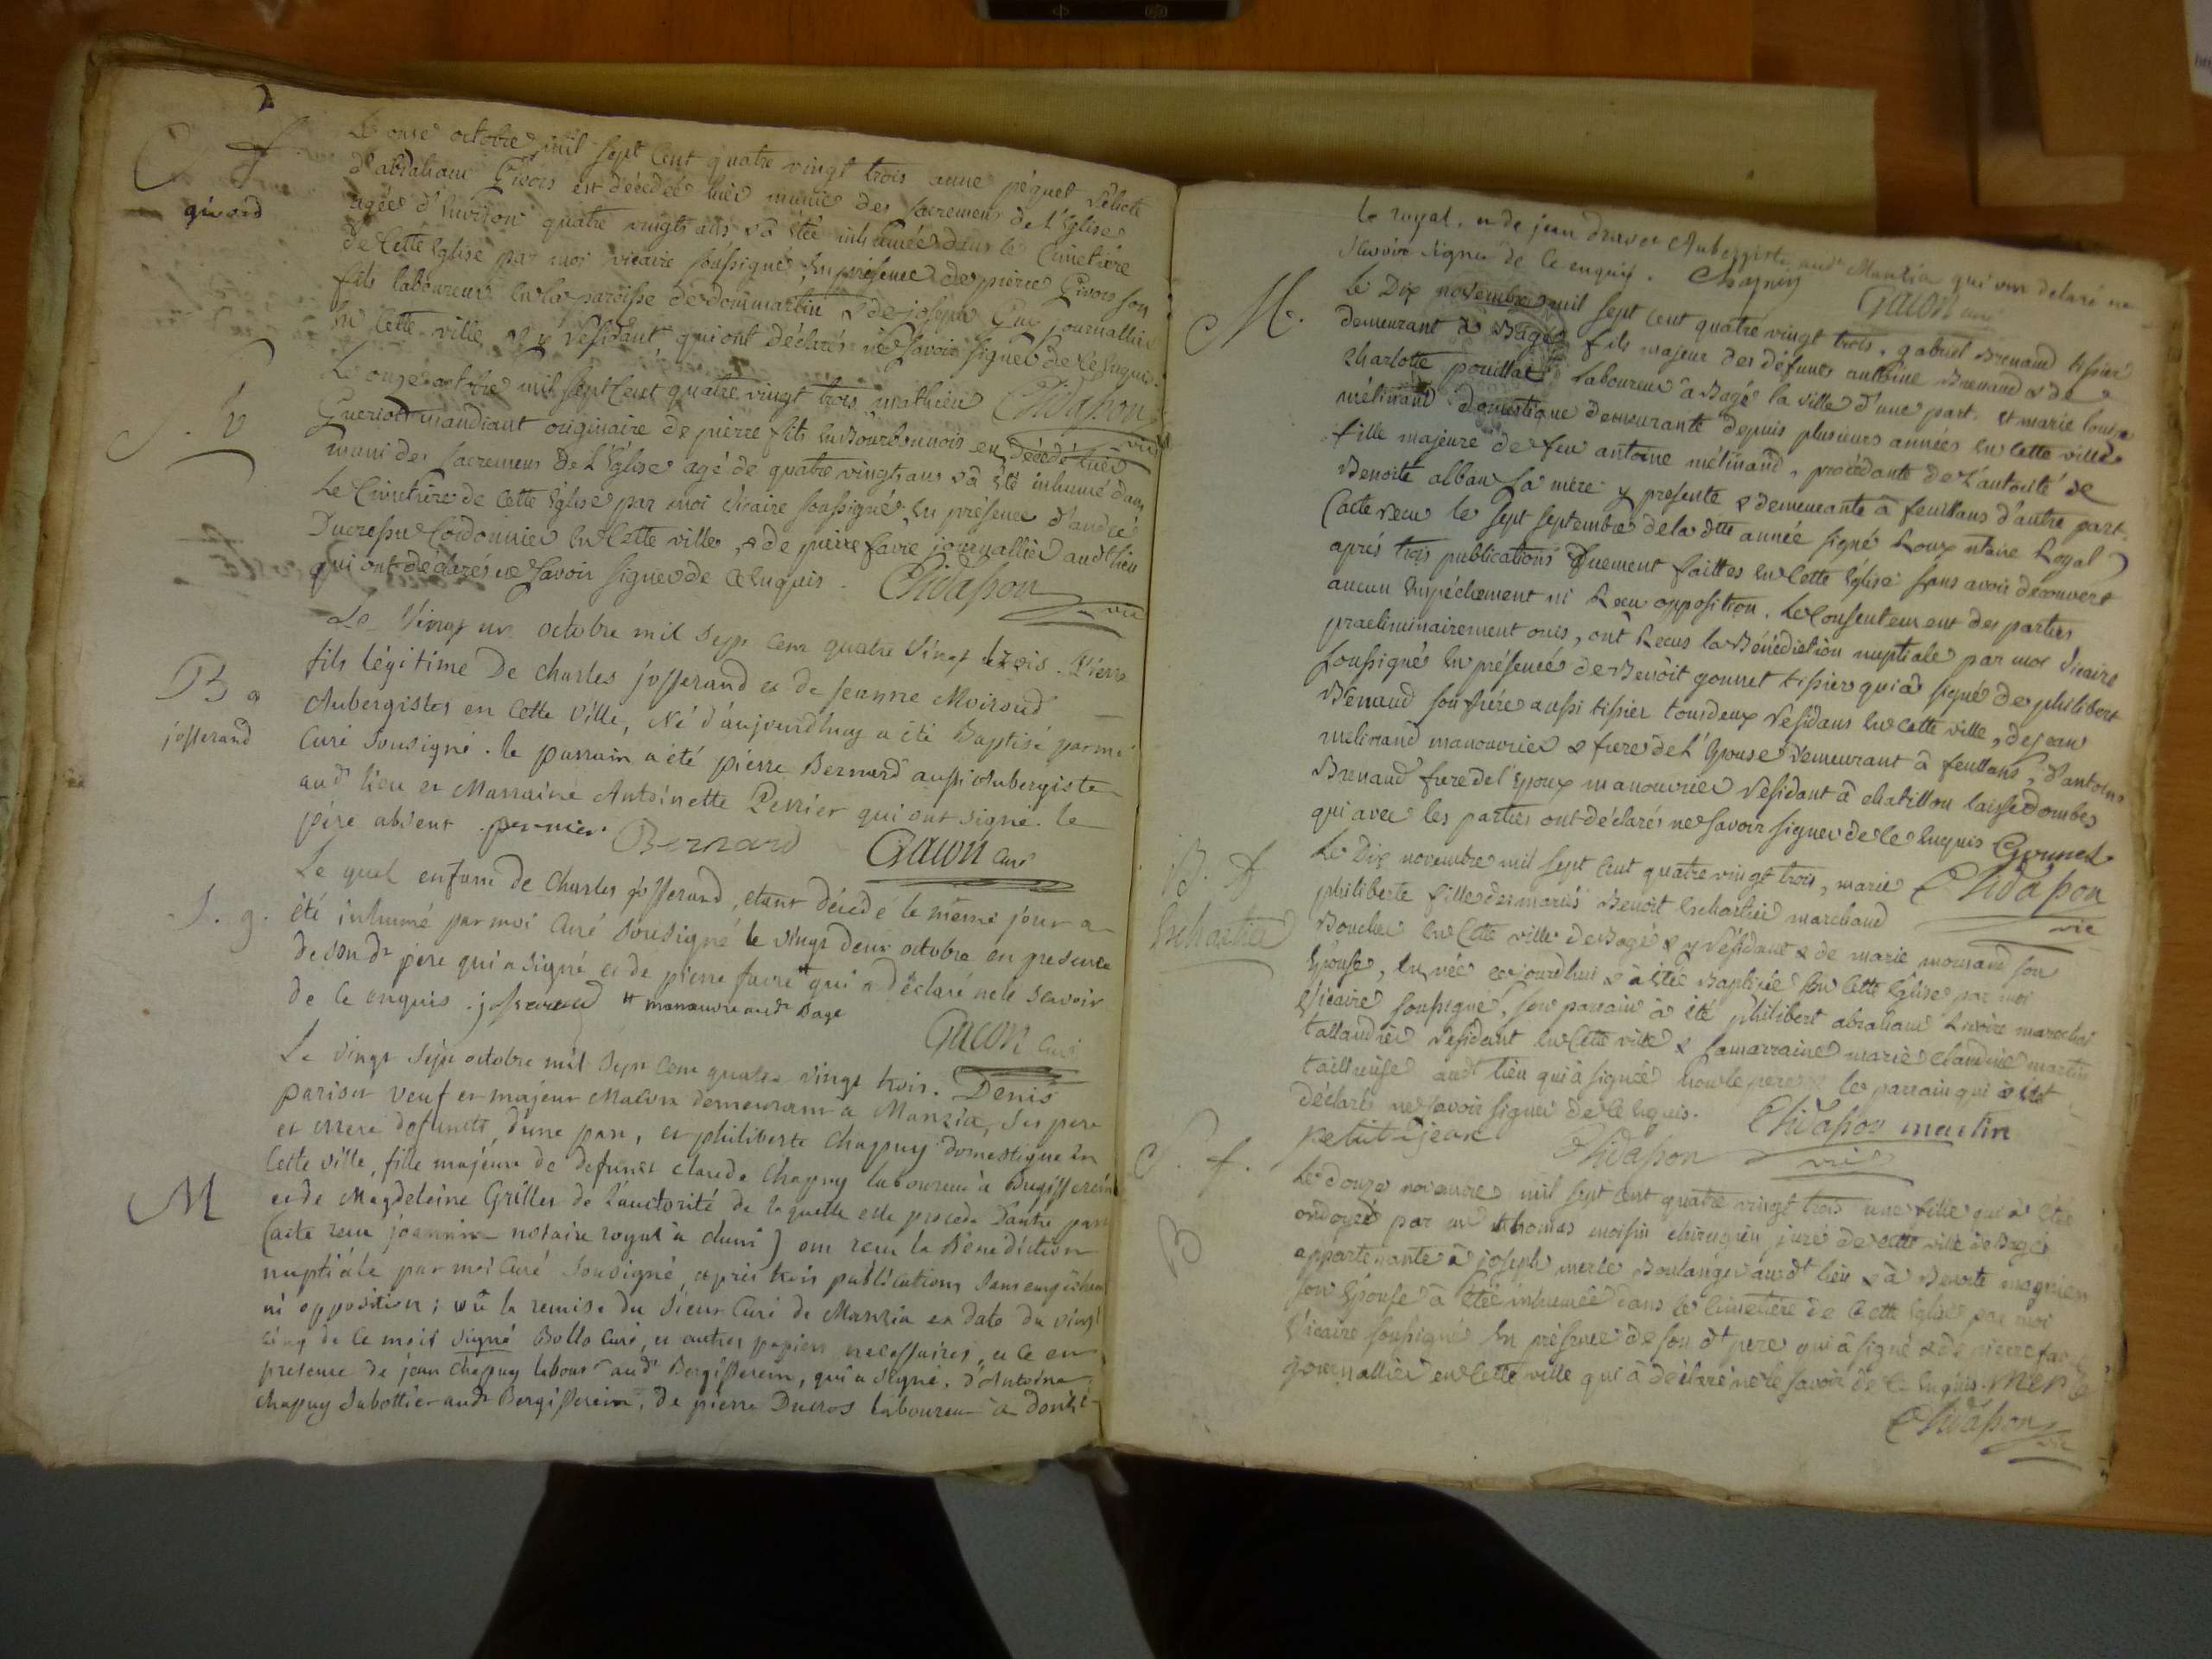 S. f.
givord
Le onse octobre mil sept cent quatre vingt trois anne péquet vêuve
d'abraham Givors est décédée hier munie des sacremens de l'Eglise
agée d'environ quatre vingts ans & a êtée inhumée dans le Cimetiere
de Cette Eglise par moi vicaire soussigné en présence de pierre Givors son
fils laboureur en la paroisse de dommartin & de joseph Guy journallier
en Cette ville & y résidant, qui ont déclarés ne savoir signer de ce enquis.
Chidasson vic
S. v
Le onze octobre mil sept cent quatre vingt trois mathieu
Gueriot mandiant originaire de pierre fits en Bourbonnois est décédé hier
muni des sacremens de l'Eglise agé de quatre vingt ans & a été inhumé dans
Le Cimetiere de Cette Eglise par moi vicaire soussigné en présence d'andré
Ducresne Cordonnier en Cette ville, & de pierre favre journallier audt lieu
qui ont declarés ne savoir signer de ce enquis. Chidasson vic
B g
josserand
Le Vingt un octobre mil sept cent quatre vingt trois. Pierre
fils légitime De charles josserand et de jeanne Moiroud
Aubergistes en Cette Ville, Né d'aujourdhuy a été Baptisé par moi
Curé sousigné. le parrain a été pierre Bernard aussi Aubergiste
audt lieu et Marraine Antoinette Perrier qui ont signé. le
père absent. perrier Bernard Gacon Curé
S. g.
Le quel enfant de charles josserand, etant décedé le même jour a
été inhumé par moi Curé sousigné le vingt deux octobre en presence
de son dt pere qui a signé et de pierre favre # qui a déclaré ne le scavoir
de ce enquis. josserand # manoeuvre audt Bagé
Gacon Curé
M
Le vingt sept octobre mil sept cent quatre vingt trois. Denis
pariset veuf et majeur Maçon demeurant a Manzia, ses pere
et mere defuncts, d'une part, et philiberte chapuy domestique en
Cette ville, fille majeure de defunct claude chapuy laboureur à Bugisserein
et de Magdeleine Grillet de l'auctorité de laquelle elle procede D'autre part
(acte recu joannin notaire royal à cluni) ont recu la Bénédiction
nuptiale par moi Curé Sousigné, après trois publications sans empêchem
ni opposition; vû la remise du sieur Curé de Manzia en date du vingt
cinq de ce mois signé Bollo Curé, et autres papiers necessaires, et ce en
presence de jean chapuy labour audt Bergisserein, qui a signé, d'Antoine
chapuy Sabottier audt Bergisserein, de pierre Ducros laboureur a dont
le royal, et de jean Aubergiste audt Manzia qui ont delaré ne
scavoir signer de ce enquis. Chapuy Gacon curé
M.
Le Dix novembre mil sept cent quatre vingt trois. gabriel Brenaud tissier
demeurant à Bagé, fils majeur des défunts antoine Brenaud & de
charlotte pouillat laboureur à Bagé la ville d'une part. et marie louise
mélinand domestique demeurante depuis plusieurs années en Cette ville
fille majeure de feu antoine mélinand, procédante de l'autorité de
Benoite alban sa mère y presente & demeurante à feuillans d'autre part.
(acte recu le sept septembre de la dtte année signé Roux ntaire Royal)
aprés trois publications duement faittes en Cette Eglise sans avoir découvert
aucun empéchement ni Recu opposition. Le Consentement des parties
praeliminairement ouis, ont Recus la Bénédiction nuptiale par moi vicaire
soussigné en présence de Benoit gonnet tissier qui a signé de philibert
Brenaud son frére aussi tissier tous deux residans en cette ville, de jean
melinand manouvrier & frere de l'Epouse demeurant à feuillans, d'antoine
Brenaud frere de l'Epoux manouvrier résidant à chatillon laisse dombes
qui avec les parties ont déclarés ne savoir signer de ce enquis Gonnet
Chidasson vic
B. f
Le Dix novembre mil sept cent quatre vingt trois, marie
philiberte fille des mariés Benoit Echartier marchand
Boucher en Cette ville de Bagé & y résidant & de marie mornand son
Epouse, est née cejourdhui & à êtée Baptisée en Cette Eglise par moi
vicaire soussigné, son parrain à été philibert abraham marechal
tallandier résidant en Cette ville & sa marraine marie claudine martin
tailleuse audt lieu qui à signée non le pere & le parrain qui
déclarés ne savoir signer de ce enquis. Chidasson martin
petitjean Chidasson vic
S. f.
B
Le douze novembre mil sept cent quatre vingt trois une fille qui à êtée
ondoyée par thomas moisin chirurgien juré de cette ville de Bagé
appartenante à joseph merle Boulanger audt lieu & à Benoite magnien
son Epouse à êtée inhumée dans le Cimetiére de Cette Eglise par moi
vicaire soussigné en présence de son dt pere qui à signé & de pierre favre
journallier en Cette ville qui à déclaré ne le savoir de ce enquis. merle
Chidasson vic